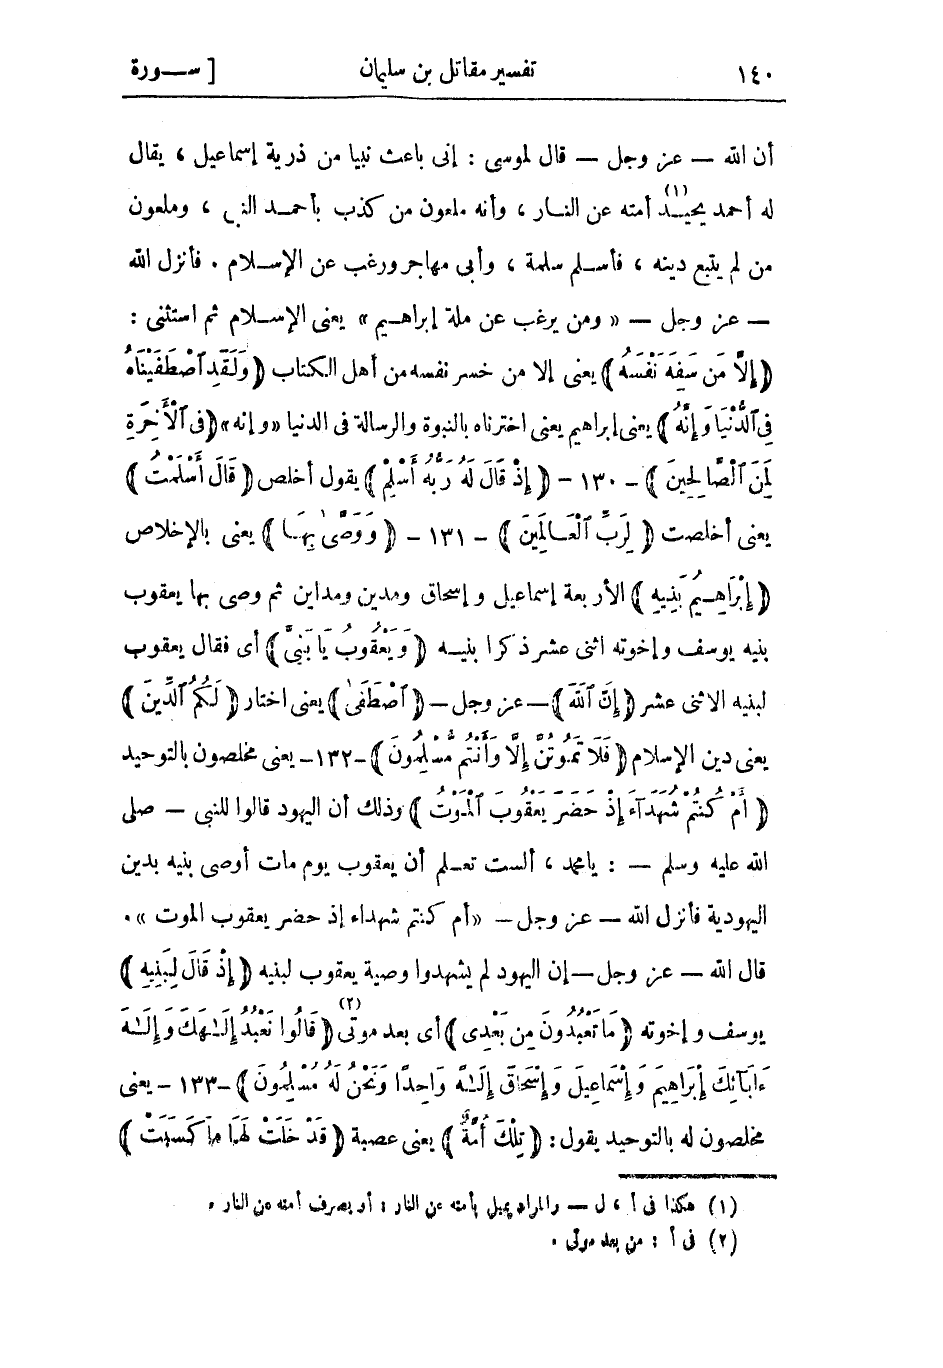 ١٤٠ تفسير مقاتل بن سليمان [ ســورة
أن الله — عز وجل — قال لموسى : إنى باعث نبيا من ذرية إسماعيل ، يقال
له أحمد يحيــد(١) أمته عن النــار ، وأنه ملعون من كذب بأحمــد النبى ، وملعون
من لم يتبع دينه ، فأســلم سلمة ، وأبى مهاجر ورغب عن الإســلام . فأنزل الله
— عز وجل — « ومن يرغب عن ملة إبراهــيم » يعنى الإســلام ثم استثنى :
﴿ إِلَّا مَن سَفِهَ نَفْسَهُ ﴾ يعنى إلا من خسر نفسه من أهل الكتاب ﴿ وَلَقَدِ ٱصْطَفَيْنَاهُ
فِى ٱلدُّنْيَا وَإِنَّهُ ﴾ يعنى إبراهيم يعنى اخترناه بالنبوة والرسالة فى الدنيا «وإنه» ﴿ فِى ٱلْأَخِرَةِ
لَمِنَ ٱلصَّالِحِينَ ﴾ - ١٣٠ - ﴿ إِذْ قَالَ لَهُ رَبُّهُ أَسْلِمْ ﴾ يقول أخلص ﴿ قَالَ أَسْلَمْتُ ﴾
يعنى أخلصت ﴿ لِرَبِّ ٱلْعَــالَمِينَ ﴾ - ١٣١ - ﴿ وَوَصَّىٰ بِهَــا ﴾ يعنى بالإخلاص
﴿ إِبْرَاهِــيمُ بَنِيهِ ﴾ الأربعة إسماعيل و إسحاق ومدين ومداين ثم وصى بها يعقوب
بنيه يوسف و إخوته اثنى عشر ذكرا بنيــه ﴿ وَيَعْقُوبُ يَا بَنِىَّ ﴾ أى فقال يعقوب
لبنيه الاثنى عشر ﴿ إِنَّ ٱللَّهَ ﴾ — عز وجل — ﴿ ٱصْطَفَىٰ ﴾ يعنى اختار ﴿ لَكُمُ ٱلدِّينَ ﴾
يعنى دين الإسلام ﴿ فَلَا تَمُوتُنَّ إِلَّا وَأَنتُم مُّسْلِمُونَ ﴾ -١٣٢- يعنى مخلصون بالتوحيد
﴿ أَمْ كُنتُمْ شُهَدَآءَ إِذْ حَضَرَ يَعْقُوبَ ٱلْمَوْتُ ﴾ وذلك أن اليهود قالوا للنبى — صلى
الله عليه وسلم — : يا محمد ، ألست تعــلم أن يعقوب يوم مات أوصى بنيه بدين
اليهودية فأنزل الله — عز وجل — «أم كنتم شهداء إذ حضر يعقوب الموت » .
قال الله — عز وجل — إن اليهود لم يشهدوا وصية يعقوب لبنيه ﴿ إِذْ قَالَ لِبَنِيهِ ﴾
يوسف و إخوته ﴿ مَا تَعْبُدُونَ مِن بَعْدِى ﴾ أى بعد موتى(٢) ﴿ قَالُوا نَعْبُدُ إِلَـٰهَكَ وَإِلَـٰهَ
ءَابَآئِكَ إِبْرَاهِيمَ وَإِسْمَاعِيلَ وَإِسْحَاقَ إِلَـٰهًا وَاحِدًا وَنَحْنُ لَهُ مُسْلِمُونَ ﴾ -١٣٣- يعنى
مخلصون له بالتوحيد يقول : ﴿ تِلْكَ أُمَّةٌ ﴾ يعنى عصبة ﴿ قَدْ خَلَتْ لَهَا مَا كَسَبَتْ ﴾
(١) هكذا فى أ ، ل — والمراد يميل بأمته عن النار : أو يصرف أمته عن النار .
(٢) فى أ : من بعد موتى .